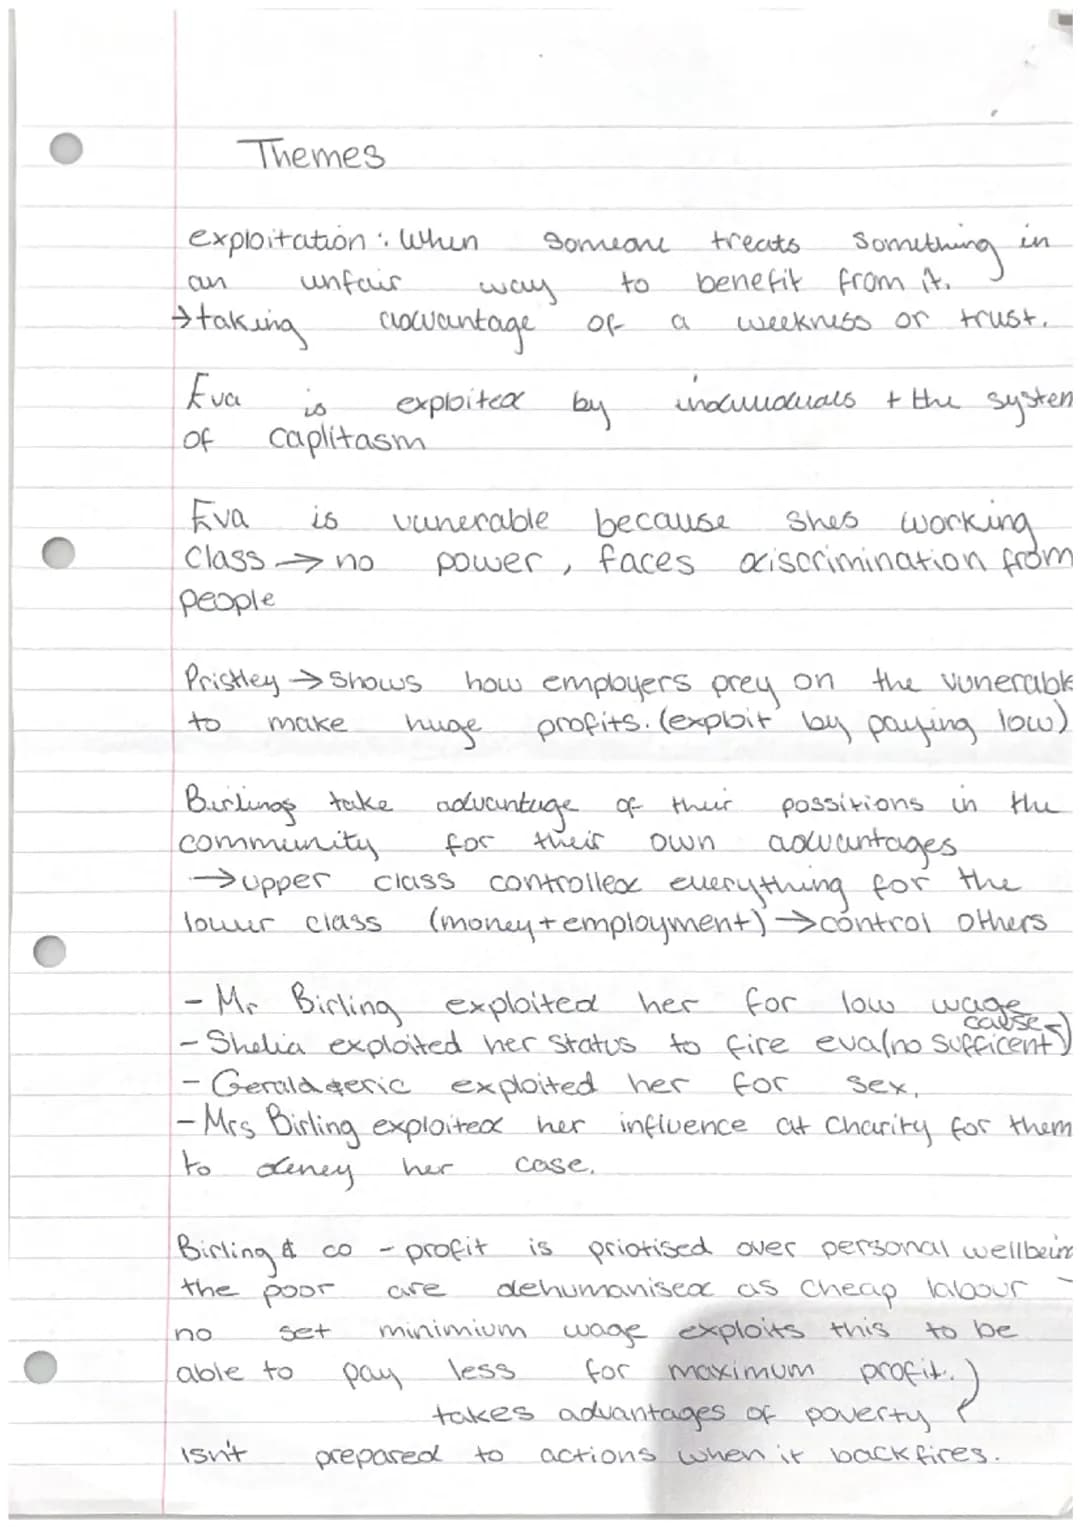 Themes
exploitation : When someone treats something in
an unfair way to benefit from it.
→taking advantage of a weekness or trust.
Eva is exploited by individuals + the system
of caplitasm
Eva is vunerable because shes working
Class → no power, faces discrimination from
people
Pristley → Shows how employers prey on the vunerable
to make huge profits. (exploit by paying low)
Birlings take advantage of their possitions in the
community for their own advantages
→upper class controlled everything for the
lower class (money+employment) →control others
- Mr Birling exploited her for low wage
cause
- Shelia exploited her status to fire eva(no sufficent)
- Gerald & eric exploited her for sex,
- Mrs Birling exploited her influence at Charity for them
to deney her case.
Birling & co - profit is priotised over personal wellbein
the poor are dehumanised as cheap labour -
no set minimium wage exploits this to be
able to pay less for maximum profit.)
takes advantages of poverty
isn't prepared to actions when it backfires.